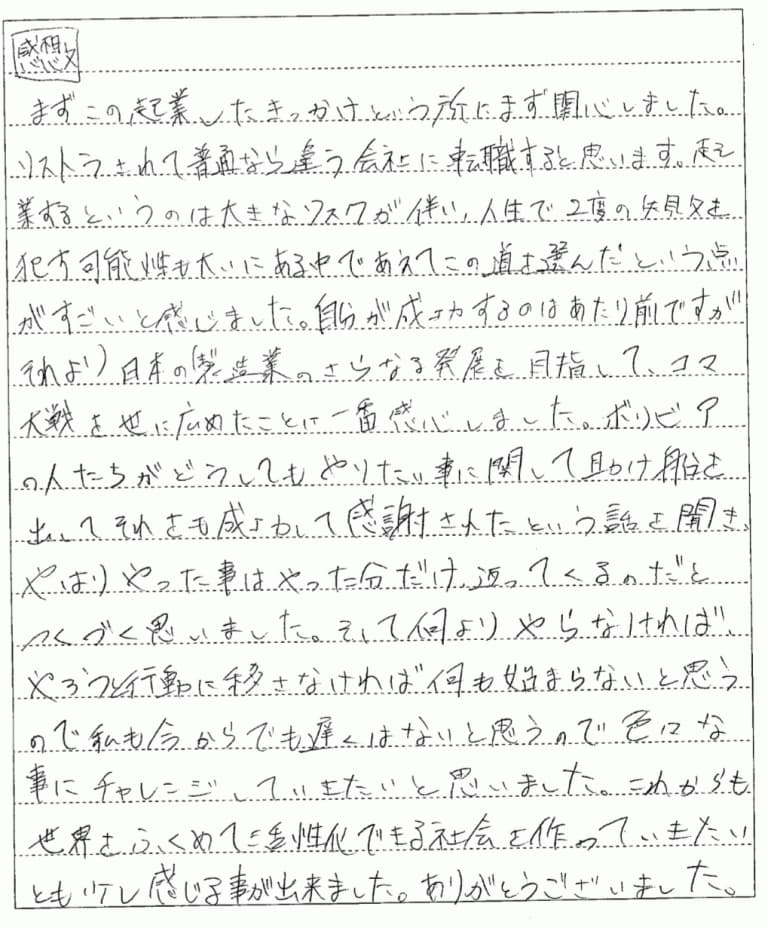 感想文
まずこの起業したきっかけという所にまず関心しました。
リストラされて普通なら違う会社に転職すると思います。起
業するというのは大きなリスクが伴い、人生で2度の失敗を
犯す可能性も大いにある中であえてこの道を選んだという点
がすごいと感じました。自分が成功するのはあたり前ですが
それより日本の製造業のさらなる発展を目指して、コマ
大戦を世に広めたことに一番感心しました。ボリビア
の人たちがどうしてもやりたい事に関して助け船を
出してそれをも成功して感謝されたという話を聞き、
やはりやった事はやった分だけ返ってくるのだと
つくづく思いました。そして何よりやらなければ、
やろうと行動に移さなければ何も始まらないと思う
ので私も今からでも遅くはないと思うので色々な
事にチャレンジしていきたいと思いました。これからも
世界をふくめて活性化できる社会を作っていきたい
とも少し感じる事が出来ました。ありがとうございました。